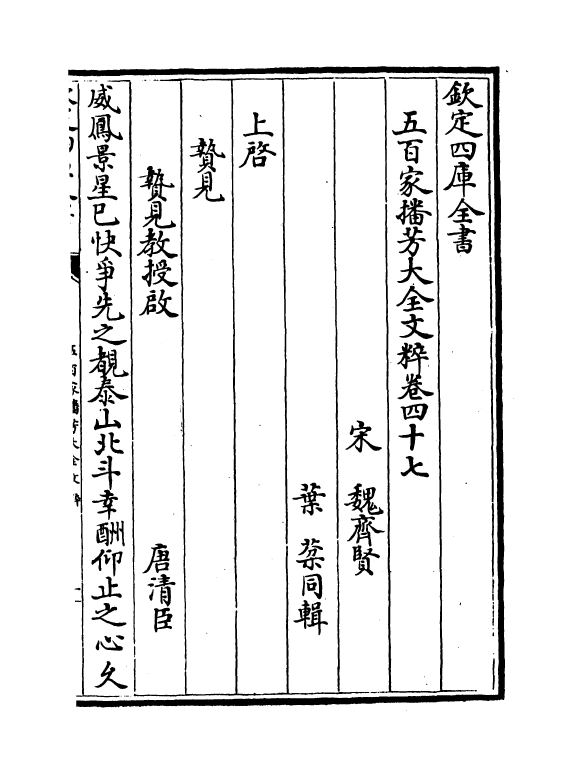 欽定四庫全書
五百家播芳大全文粹卷四十七
宋 魏齊賢
葉棻同輯
上啓
贄見
贄見教授啟 唐清臣
威鳳景星已快爭先之覩泰山北斗幸酬仰止之心久